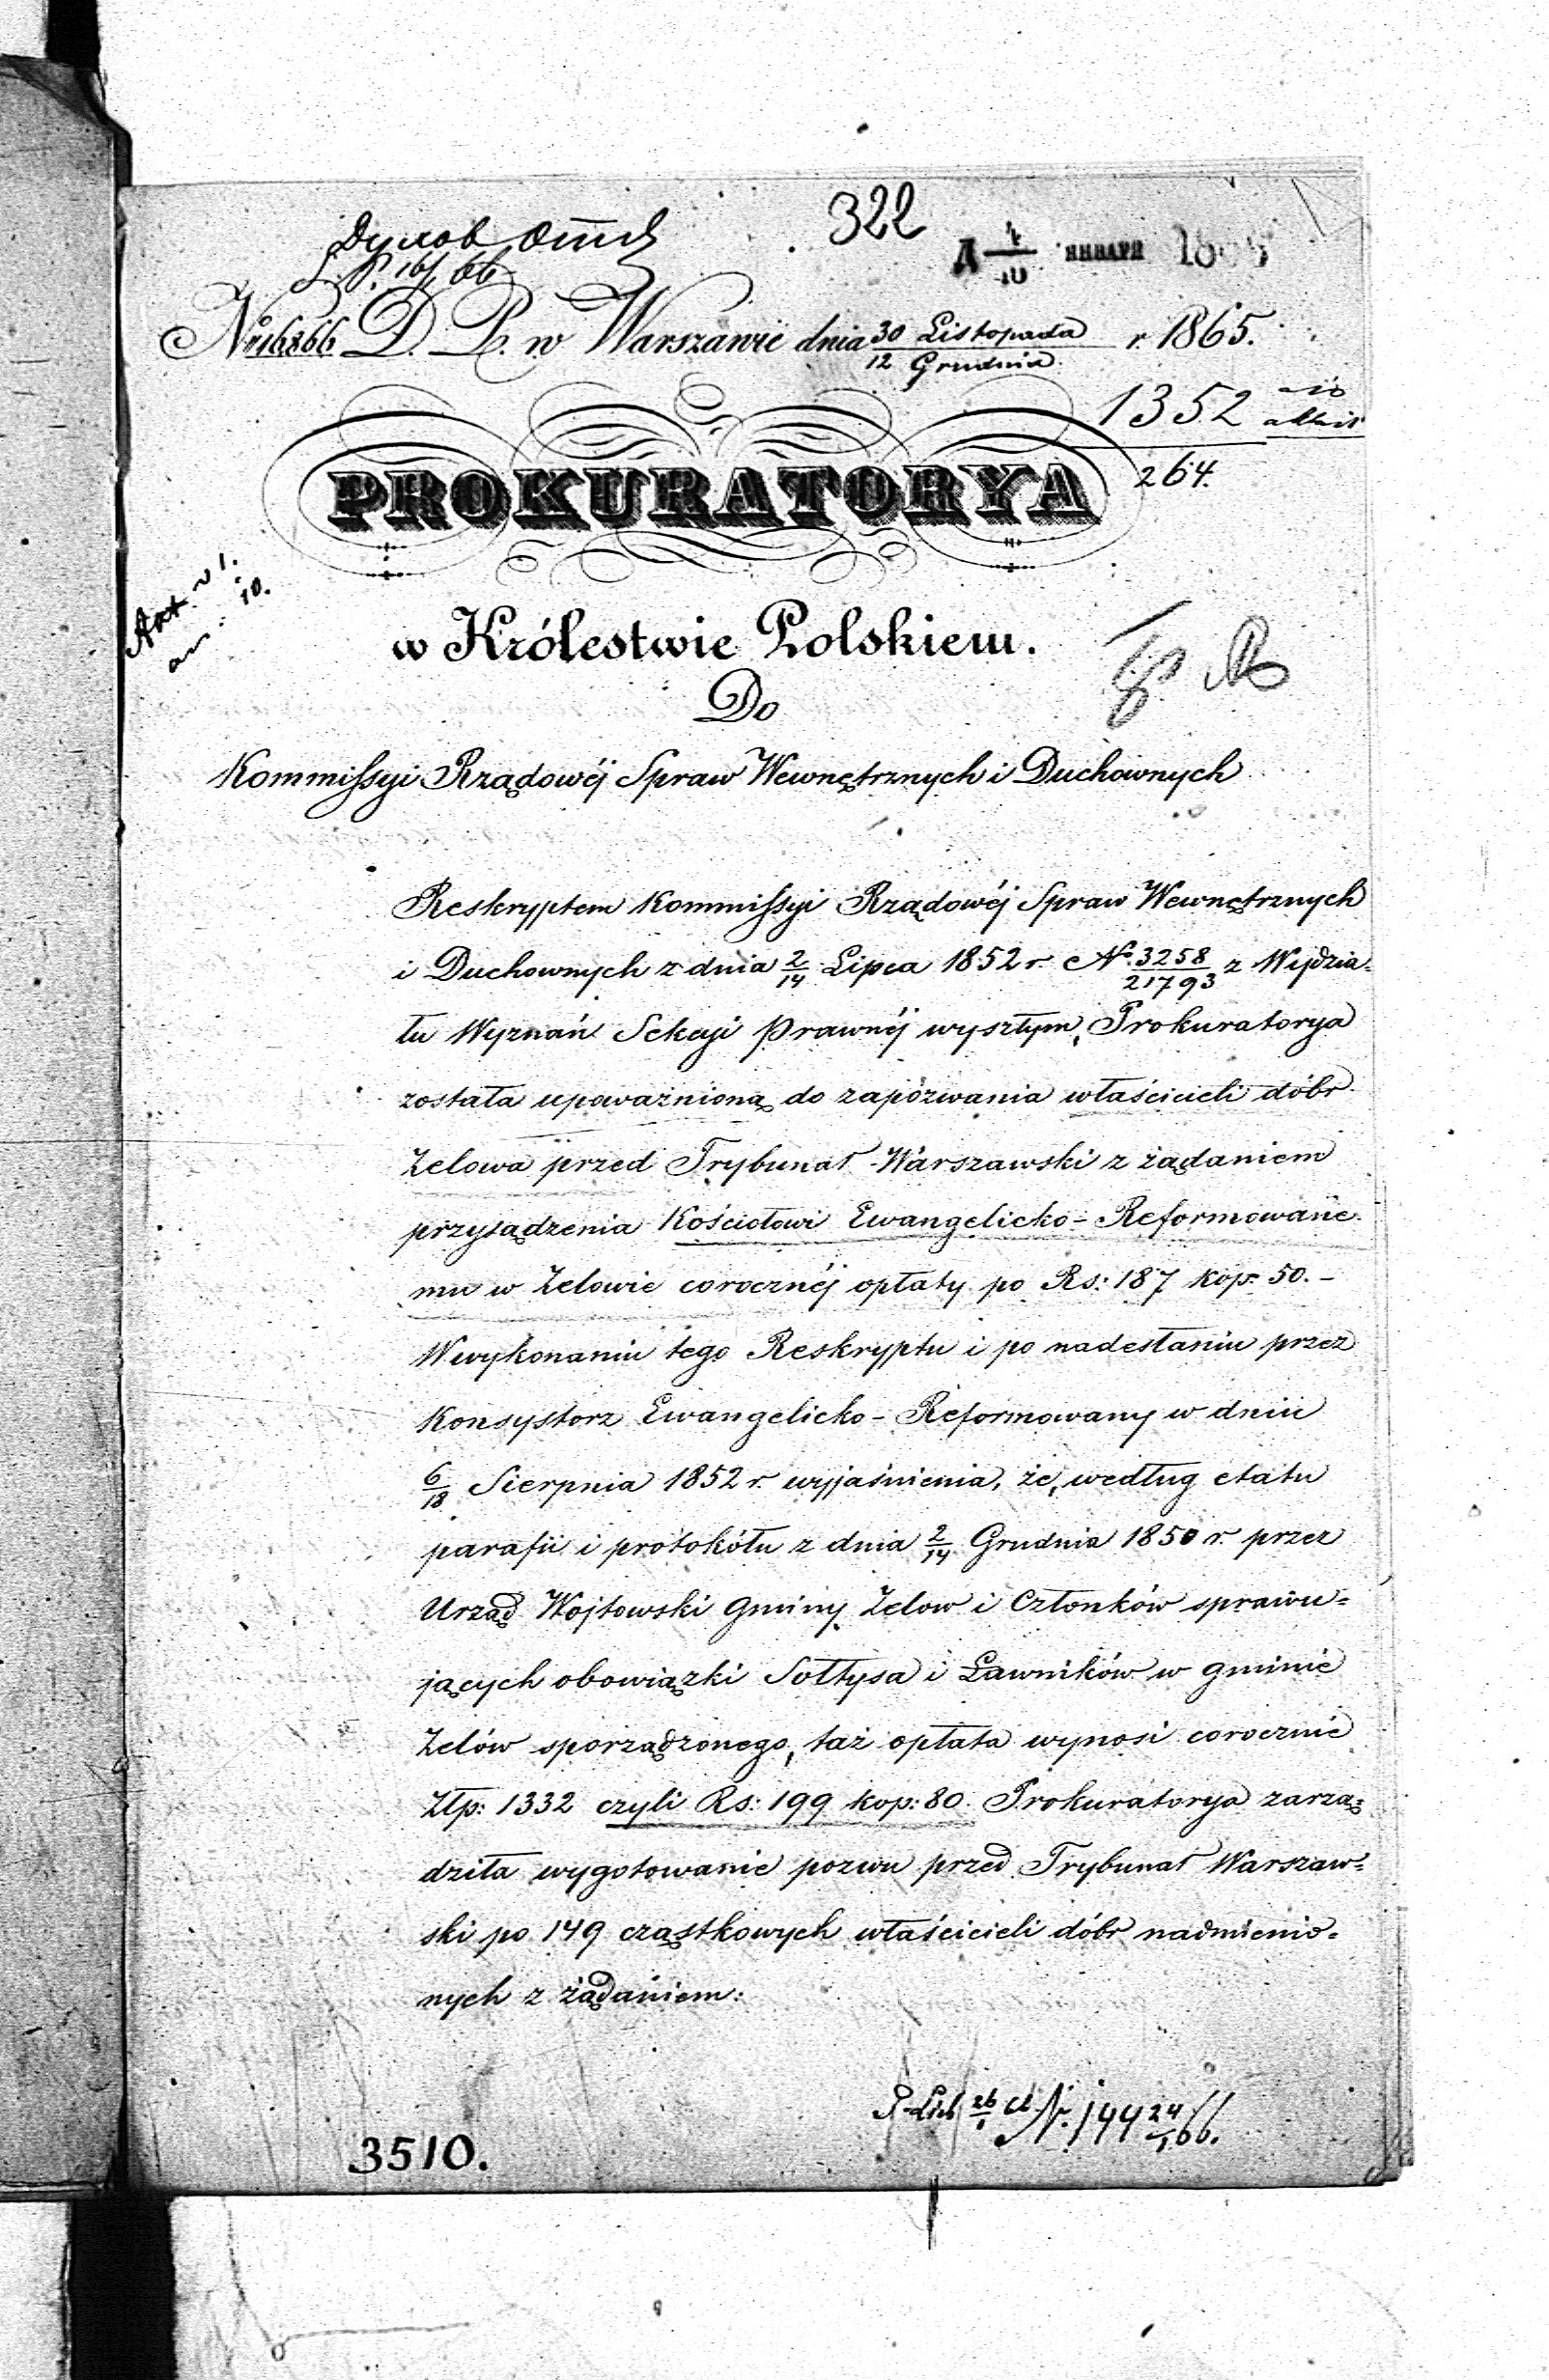 322
Духов Отд
4/10 ЯНВАРЯ
№ 16866 D. P. w Warszawie dnia 30 Listopada / 12 Grudnia r. 1865.
1352
264.
PROKURATORYA
w Królestwie Polskiem.
Do
Kommissyi Rządowéj Spraw Wewnętrznych i Duchownych
Reskryptem Kommissyi Rządowéj Spraw Wewnętrznych
i Duchownych z dnia 2/14 Lipca 1852 r. № 3258/21793 z Wydzia-
łu Wyznań Sekcyi Prawnéj wyszłym, Prokuratorya
została upoważnioną do zapózwania właścicieli dóbr
Zelowa przed Trybunał Warszawski z żądaniem
przysądzenia Kościołowi Ewangelicko-Reformowane-
mu w Zelowie corocznéj opłaty po Rs: 187 kop. 50.-
W wykonaniu tego Reskryptu i po nadesłaniu przez
Konsystorz Ewangelicko-Reformowany w dniu
6/18 Sierpnia 1852 r. wyjaśnienia, że, według etatu
parafii i protokółu z dnia 2/14 Grudnia 1850 r. przez
Urząd Wojtowski Gminy Zelow i Członków sprawu=
jących obowiązki Sołtysa i Ławników w gminie
Zelów sporządzonego, taż opłata wynosi corocznie
Złp: 1332 czyli Rs: 199 kop: 80. Prokuratorya zarzą=
dziła wygotowanie pozwu przed Trybunał Warszaw=
ski po 149 cząstkowych właścicieli dóbr nadmienio=
nych z żądaniem:
3510.